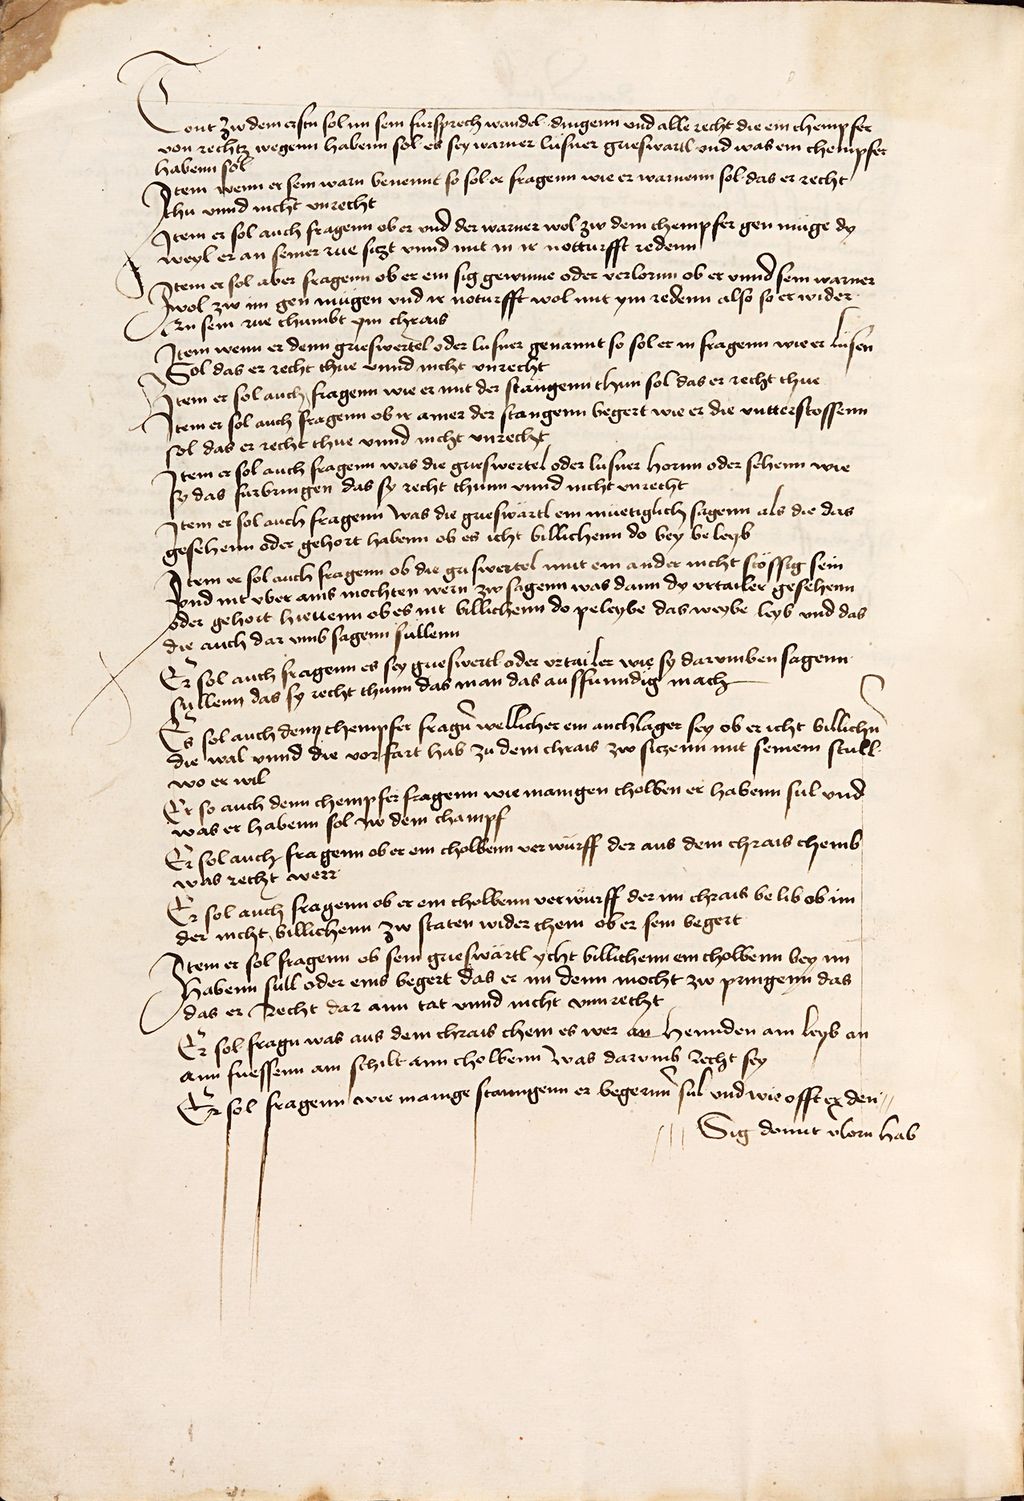 Tout zw dem erstn sol im sein fursprech wandel dingenn vnd alle recht die ein chempfer
von rechtz wegenn habenn sol es sey warner lusner grieswartl vnd was ein chempfer
habenn sol
Item wenn er sein warn benennt so sol er fragenn wie er warnenn sol das er recht
thu vnnd nicht vnrecht
Item er sol auch fragenn ob er vnd der warner wol zw dem chempfer gen müge dy
weyl er an seiner rue siczt vnnd mit in ir notturfft redenn
Item er sol aber fragenn ob er ein sig gewinne oder verlornn ob er vnnd sein warner
wol zw im gen mügen vnd ir noturfft wol mit ym redenn also so er wider
Inn sein rue chumbt ym chrais
Item wenn er denn grieswertel oder lusner genannt so sol er in fragenn wie er lusen
Sol das er recht thue vnnd nicht vnrecht
Item er sol auch fragenn wie er mit der stangenn thun sol das er recht thue
Item er sol auch fragenn ob ir ainer der stangenn begert wie er die vntterstossenn
sol das er recht thue vnnd nicht vnrecht
Item er sol auch fragenn was die grieswertel oder lusner hornn oder sehenn wie
sy das furbringen das sy recht thunn vnnd nicht vnrecht
Item er sol auch fragenn was die grieswärtl ein müetiglich sagenn als die das
gesehenn oder gehort habenn ob es icht billichenn do bey beleyb
Item er sol auch fragenn ob die griswertel mit ein ander nicht stössig sein
vnd nit vber ains mochten wern zw sagenn was dann dy vrtailer gesehenn
oder gehort hietenn ob es nit billichenn do peleybe das weybe leyb vnd das
die auch dar vmb sagenn süllenn
Er sol auch fragenn es sey grieswertl oder vrtailer wie sy darumben sagenn
sullenn das sy recht thunn das man das aussfunndig mach
Es sol auch denn chempfer fragn wellicher ein anchlager sey ob er icht billichn
die wal vnnd die vorfart hab zu dem chrais zw siczenn mit seinem stull
wo er wil
Er so auch denn chempfer fragenn wie manigen cholben er habenn sul vnd
was er habenn sol zw dem champf
Er sol auch fragenn ob er ein cholbenn verwürff der aus dem chrais chemb
was recht werr
Er sol auch fragenn ob er ein cholbenn verwurff der im chrais belib ob im
der nicht billichenn zw staten wider chem ob er sein begert
Item er sol fragenn ob sein grieswärtl ycht billichenn ein cholbenn bey im
habenn süll oder eins begert das er im denn mocht zw pringenn das
das er Recht dar ann tat vnnd nicht vnnrecht
Er sol fragn was aus dem chrais chem es wer an hennden am leyb an
ann fuessenn am schilt ann cholbenn was darumb Recht sey
Er sol fragenn wie mainge stanngenn er begernn sul vnd wie offt er den
Sig domit vlorn hab